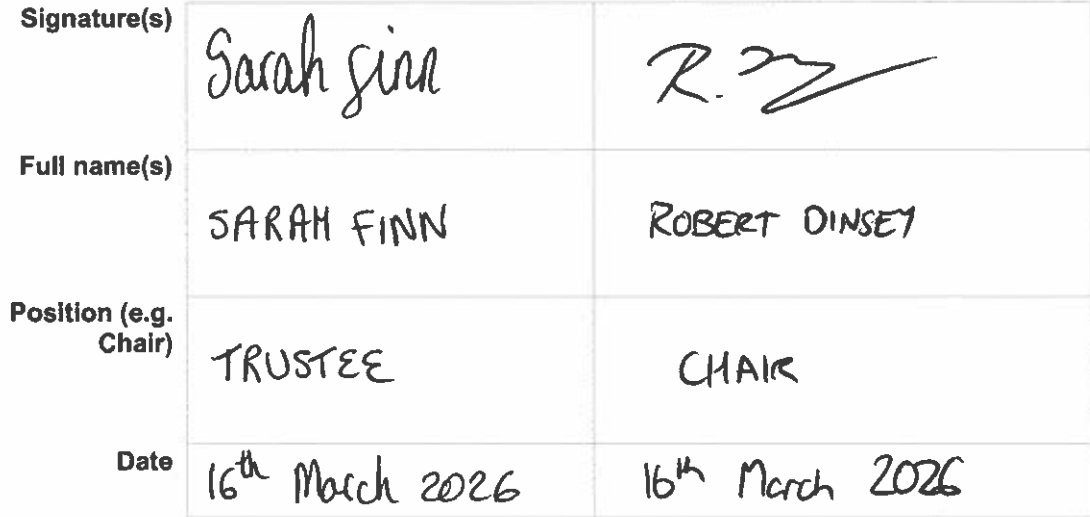 Signature(s)
Sarah Finn
R.
Full name(s)
SARAH FINN
ROBERT DINSEY
Position (e.g.
Chair)
TRUSTEE
CHAIR
Date
16th March 2026
16th March 2026